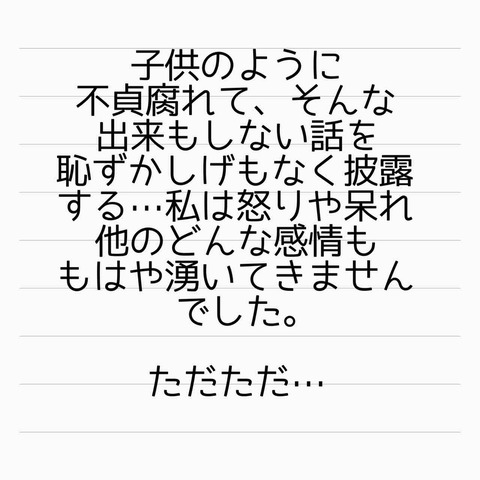 子供のように
不貞腐れて、そんな
出来もしない話を
恥ずかしげもなく披露
する…私は怒りや呆れ
他のどんな感情も
もはや湧いてきません
でした。
ただただ…